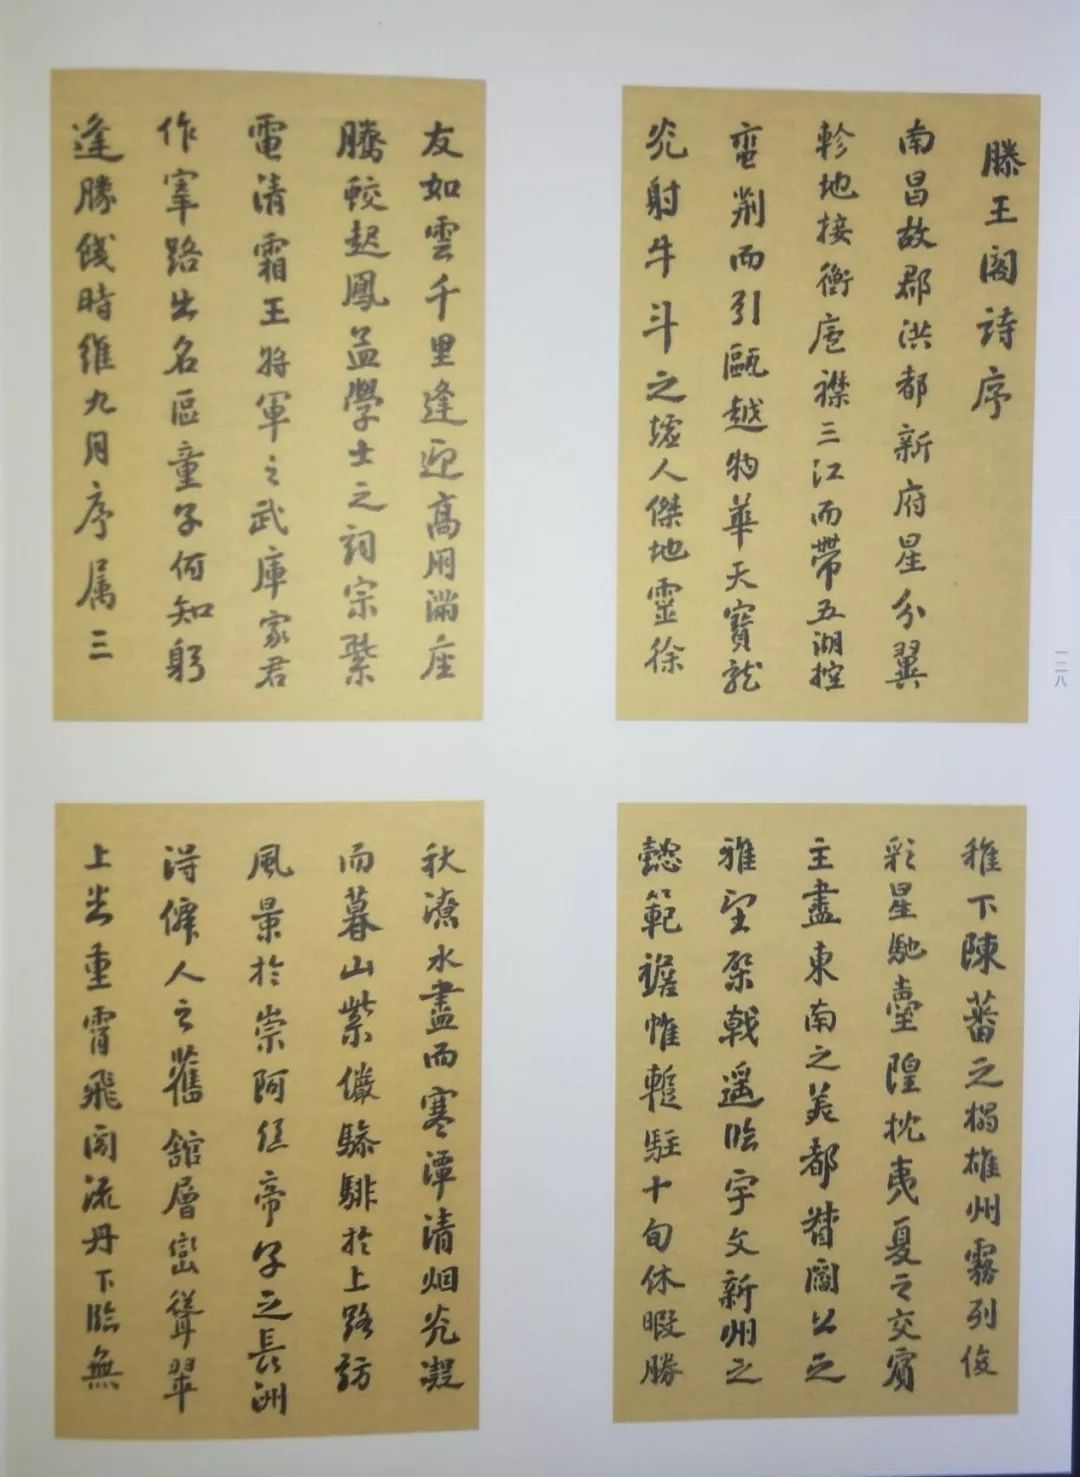 滕王閣詩序
南昌故郡洪都新府星分翼
軫地接衡廬襟三江而帶五湖控
蛮荆而引甌越物華天寶龍
光射牛斗之墟人傑地靈徐
稚下陳蕃之榻雄州霧列俊
彩星馳臺隍枕夷夏之交賓
主盡東南之美都督閻公之
雅望棨戟遥臨宇文新州之
懿範襜帷蹔駐十旬休暇勝
友如雲千里逢迎高朋滿座
騰蛟起鳳孟學士之詞宗紫
電清霜王將軍之武庫家君
作宰路出名區童子何知躬
逢勝餞時維九月序属三
秋潦水盡而寒潭清烟光凝
而暮山紫儼驂騑於上路訪
風景於崇阿臨帝子之長洲
得僊人之舊舘層巒聳翠
上出重霄飛閣流丹下臨無
一二八